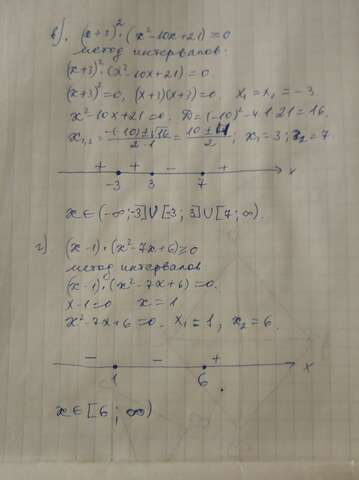 в). (x+3)²·(x²-10x+21)≥0
метод интервалов:
(x+3)²·(x²-10x+21)=0.
(x+3)²=0, (x+3)(x+3)=0, x₁=x₂=-3.
x²-10x+21=0. D=(-10)²-4·1·21=16.
x₁,₂=(-(-10)±√16)/(2·1)=(10±4)/2; x₁=3; x₂=7.
+ + - +
-3 3 7 x
x∈(-∞;-3]∪[-3;3]∪[7;∞).
г) (x-1)·(x²-7x+6)≥0
метод интервалов:
(x-1)·(x²-7x+6)=0.
x-1=0 x=1
x²-7x+6=0. x₁=1, x₂=6.
- - +
1 6 x
x∈[6;∞)